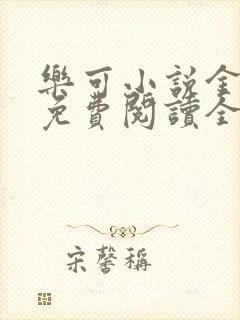 樂可小説全
免費閱讀全
宋馨稱